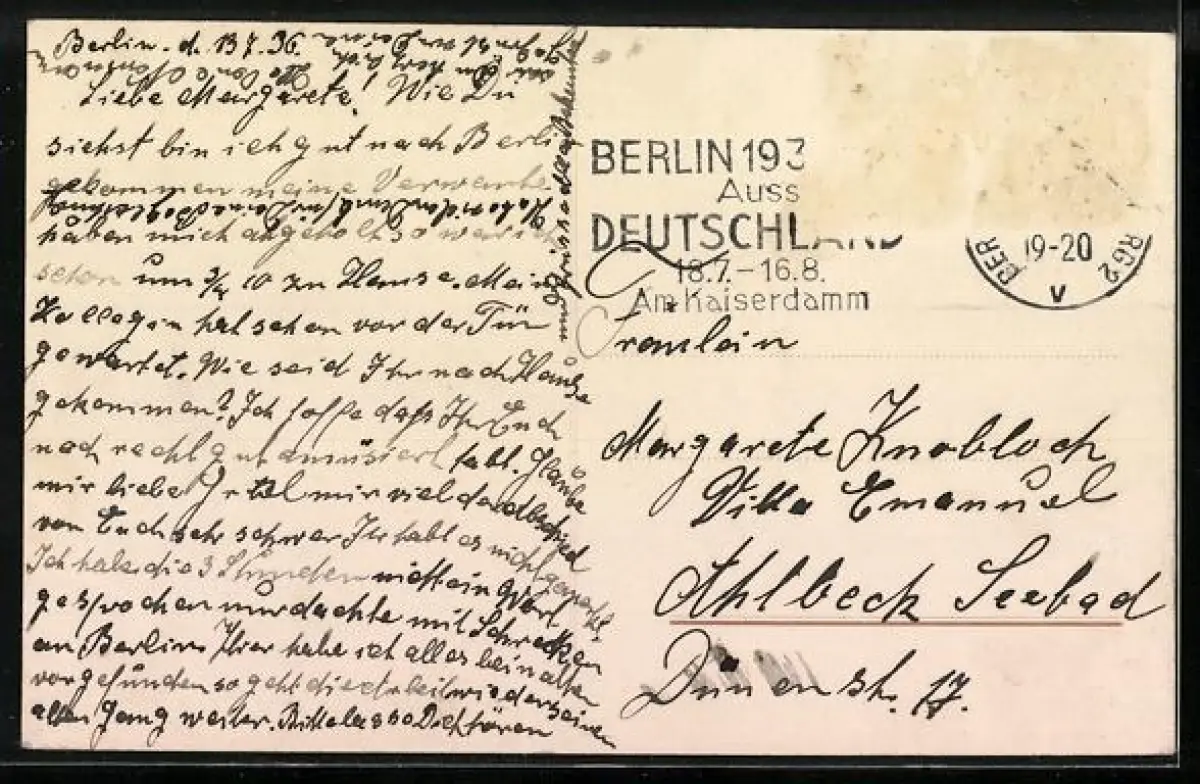 Berlin. d. 13.7.36.
Liebe Margarete! Wie Du
siehst bin ich gut nach Berlin
gekommen meine Verwandte
haben mich abgeholt so war ich
schon um 3/4 10 zu Hause. Mein
Kollegin hat schon vor der Tür
gewartet. Wie seid Ihr nach Hause
gekommen? Ich hoffe daß Ihr Euch
noch recht gut amüsiert habt. Glaube
mir liebe Gretel mir viel der Abschied
von Euch sehr schwer Ihr habt es nicht gemerkt.
Ich habe die 3 Stunden nicht ein Wort
gesprochen nur dachte mit Schrecken
an Berlin. Hier habe ich alles beim alten
vorgefunden so geht die Arbeit wieder seinen
alten Gang weiter. Bitte lasse Dich hören
BERLIN 193
Auss
DEUTSCHLAND
18.7.–16.8.
Am Kaiserdamm
BER
19-20
RG 2
V
Fräulein
Margarete Knobloch
Villa Emanuel
Ahlbeck Seebad
Dünenstr. 17.